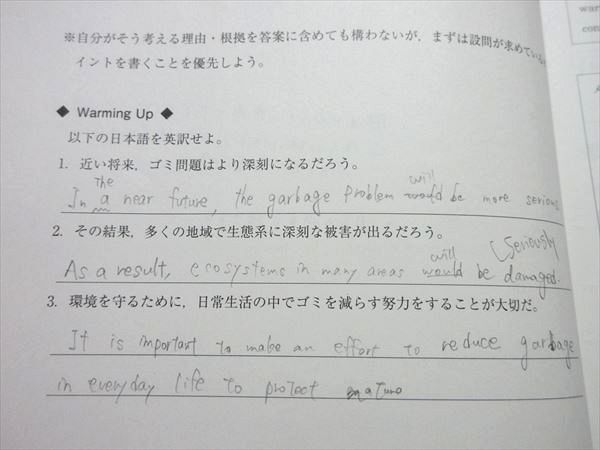 ※自分がそう考える理由・根拠を答案に含めても構わないが，まずは設問が求めている
イントを書くことを優先しよう。
◆ Warming Up ◆
以下の日本語を英訳せよ。
1. 近い将来，ゴミ問題はより深刻になるだろう。
The will
In a near future, the garbage problem would be more serious
2. その結果，多くの地域で生態系に深刻な被害が出るだろう。
will [Seriously
As a result, ecosystems in many areas would be damaged.
3. 環境を守るために，日常生活の中でゴミを減らす努力をすることが大切だ。
It is important to make an effort to reduce garbage
in everyday life to protect
war
con